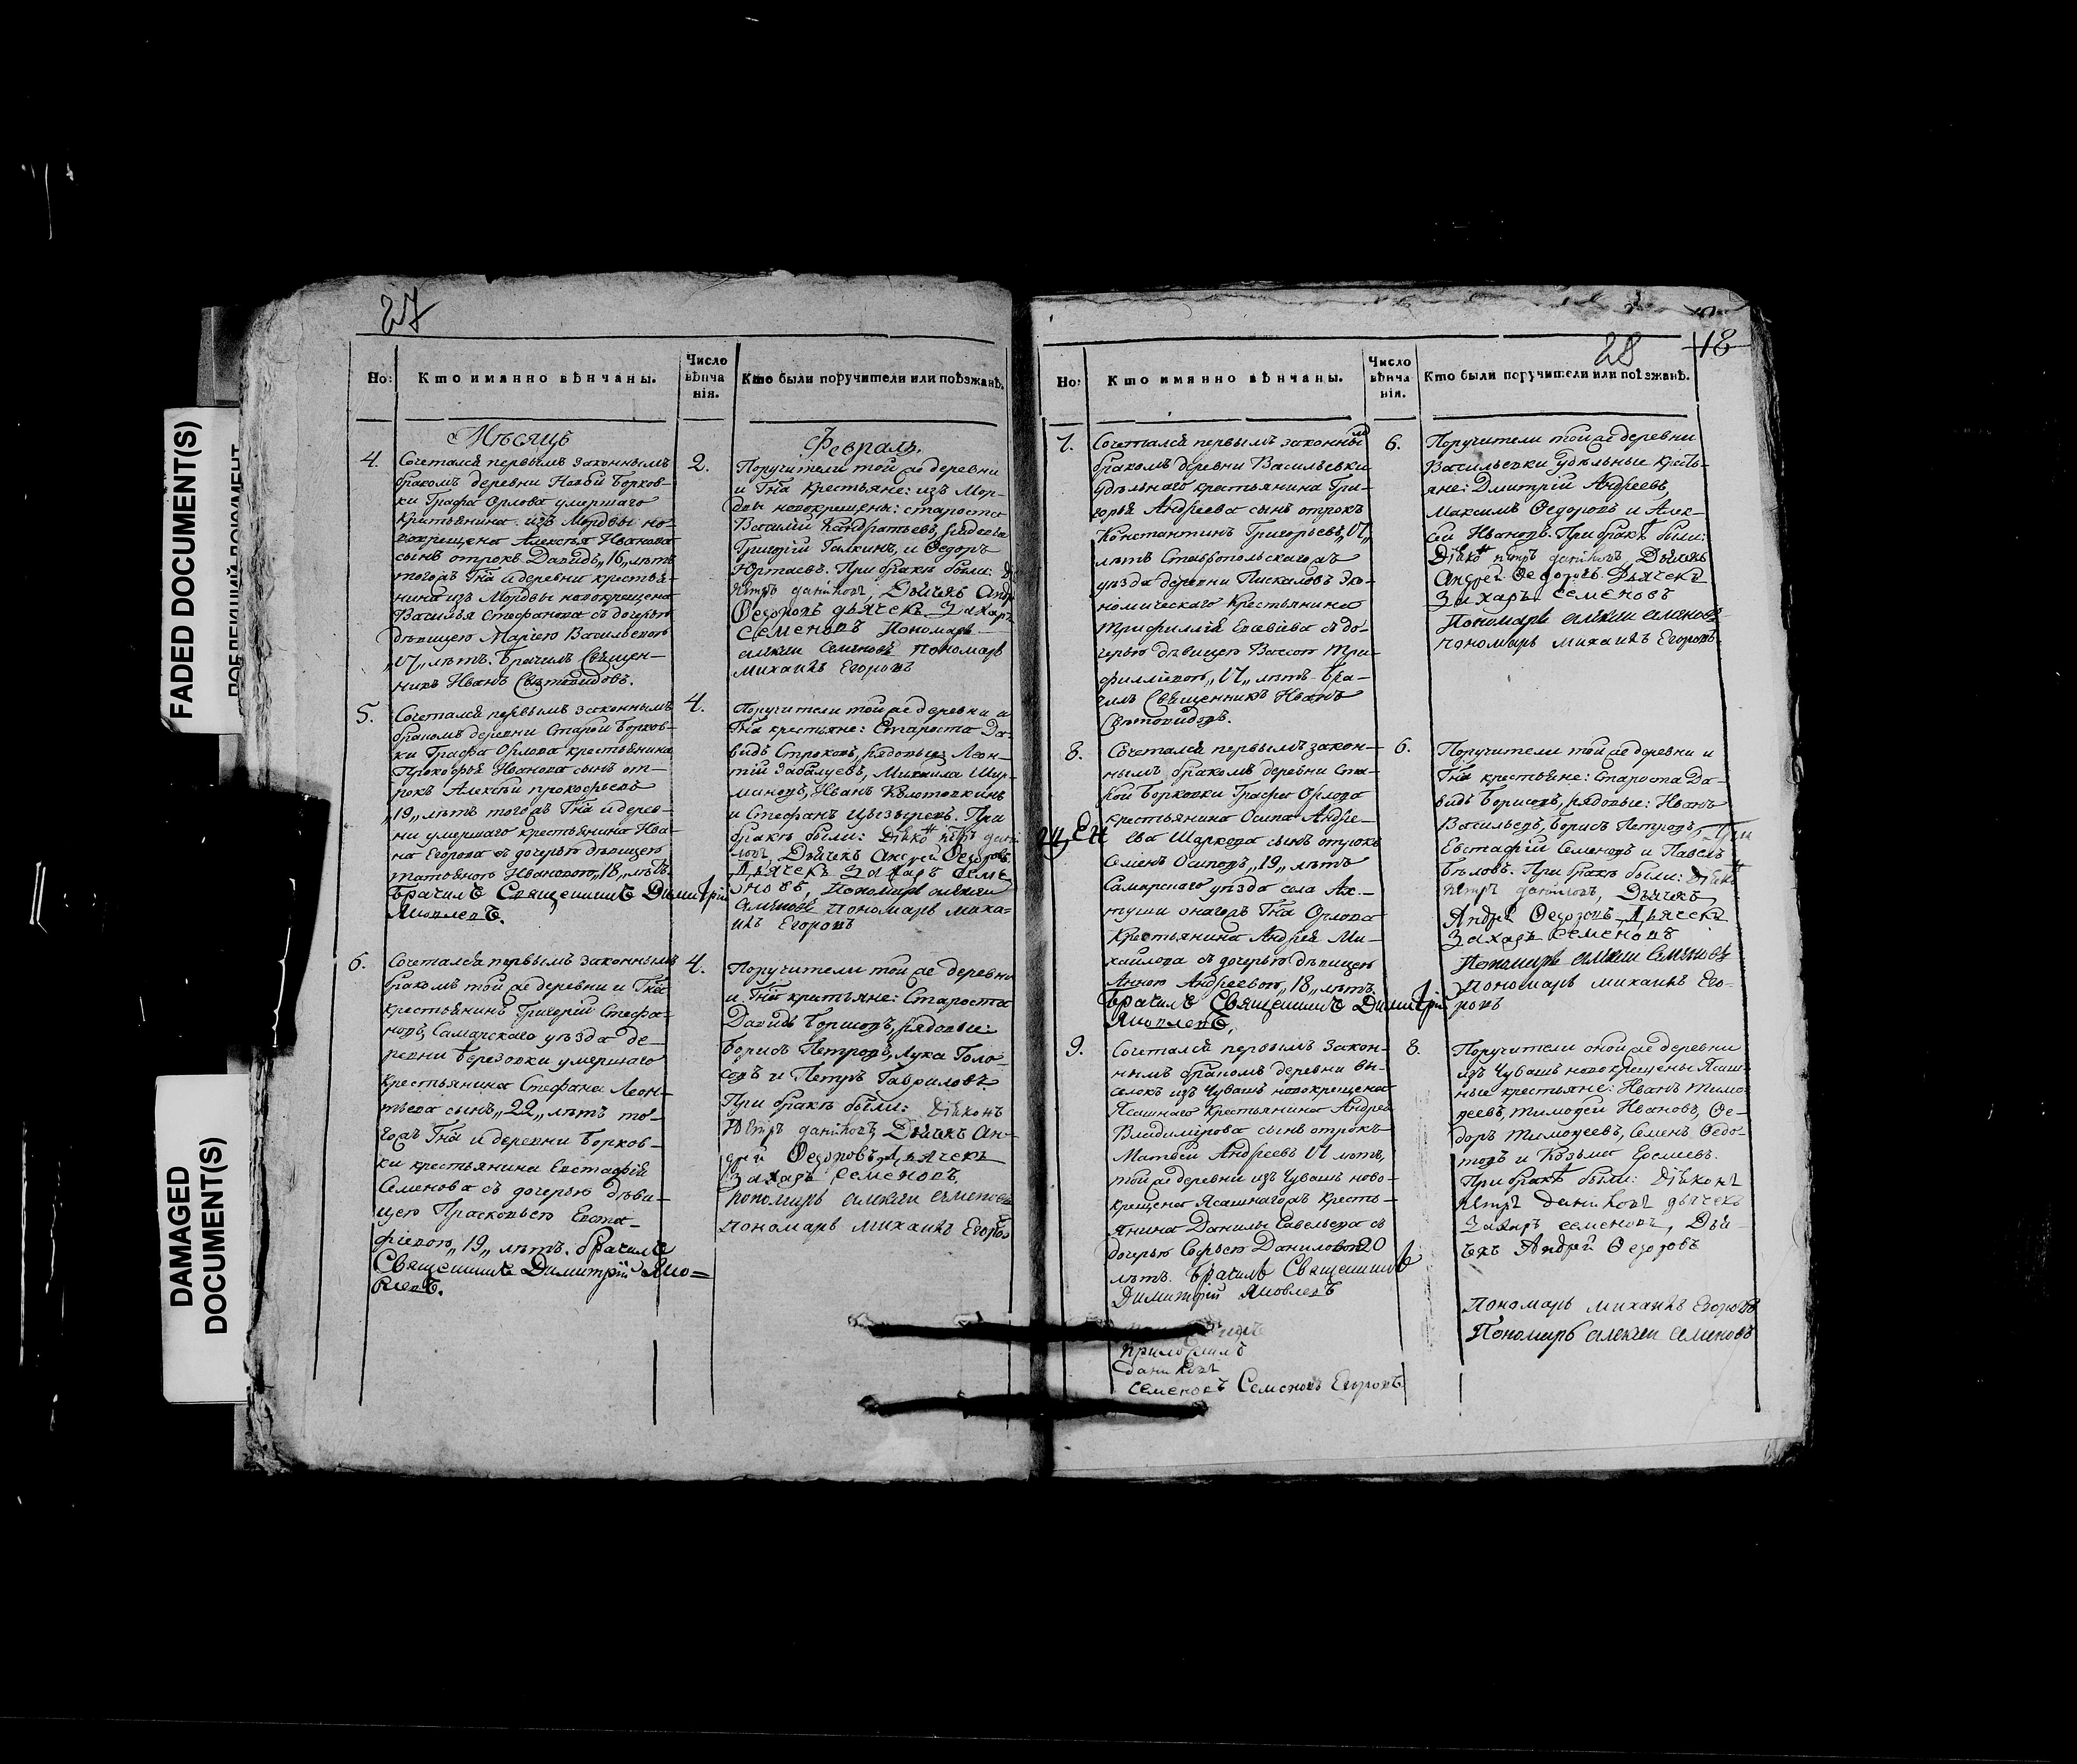 FADED DOCUMENT(S)
DAMAGED
DOCUMENT(S)
27
Но:
Кто имянно вѣнчаны.
Число
вѣнча
нія.
Кто были поручители или поѣзжанѣ.
Мѣсяцъ
Февраль.
4.
Сочетался первымъ законнымъ
бракомъ деревни Новой Борков-
ки Графа Орлова умершаго
крестьянина изъ Мордвы но-
вокрещена Алексѣя Иванова
сынъ отрокъ Давидъ „16„ лѣтъ
тогожъ Гна и деревни крестья-
нина изъ Мордвы новокрещена
Василья Стефанова съ дочерью
дѣвицею Маріею Васильевою
„17„ лѣтъ. Брачилъ Священ-
никъ Иванъ Свѣтовидовъ.
2.
Поручители той же деревни
и Гна крестьяне: изъ Мор-
двы новокрещены: староста
Василій Кандратьевъ, рядовые
Григорій Галкинъ, и Ѳедоръ
Юртаевъ. При бракѣ были:
Петръ Даниловъ, Дьячекъ Анд
Ѳедоровъ дьячекъ Захаръ
Семеновъ Пономарь
алексѣи Семеновъ пономарь
михаилъ Егоровъ
5.
Сочетался первымъ законнымъ
бракомъ деревни Старой Борков-
ки Графа Орлова крестьянина
Прокофья Иванова сынъ от-
рокъ Алексѣй прокофьевъ
„19„ лѣтъ тогожъ Гна и дерев-
ни умершаго крестьянина Ива-
на Егорова съ дочерью дѣвицею
татьяною Ивановою „18„ лѣтъ.
Брачилъ Священникъ Димитрій
Яковлевъ.
4.
Поручители той же деревни и
Гна крестьяне: Староста Да-
видъ Строковъ, рядовые: Леон-
тій Забалуевъ, Михаила Шир-
миновъ, Иванъ Колотовкинъ
и Стефанъ Цызыревъ. При
бракѣ были: Діяконъ Петръ дани
ловъ, Дьячекъ Андрей Ѳедоровъ
Дьячекъ Захаръ Семе
новъ, Пономарь алексѣи
Семеновъ пономарь миха=
илъ Егоровъ
6.
Сочетался первымъ законнымъ
бракомъ той же деревни и Гна
крестьянинъ Григорій Стефа-
новъ, Самарскаго уѣзда де-
ревни Березовки умершаго
крестьянина Стефана Леон-
тьева сынъ „22„ лѣтъ то-
гожъ Гна и деревни Борков-
ки крестьянина Евстафія
Семенова съ дочерью дѣви-
цею Прасковьею Евста-
фіевою „19„ лѣтъ. брачилъ
Священникъ Димитрій Яко=
влевъ.
4.
Поручители той же деревни
и Гна крестьяне: Староста
Давидъ Борисовъ, рядовые:
Борисъ Петровъ, Лука Голо-
совъ и Петръ Гавриловъ.
При бракѣ были: Діяконъ
Петръ даниловъ, Дьячекъ Ан-
дрей Ѳедоровъ, Дьячекъ
Захаръ Семеновъ,
пономарь алексѣи семеновъ
пономарь михаилъ Егоровъ
28
18
Но:
Кто имянно вѣнчаны.
Число
вѣнча
нія.
Кто были поручители или поѣзжанѣ.
7.
Сочетался первымъ законнымъ
бракомъ деревни Васильевки
удѣльнаго крестьянина Гри-
горья Андреева сынъ отрокъ
Константинъ Григорьевъ „17„
лѣтъ Ставропольскагожъ
уѣзда деревни Пискаловъ Эко-
номическаго крестьянина
Трифиллія Евсевіева съ до-
черью дѣвицею Вассою Три-
филліевою „17„ лѣтъ. Бра-
чилъ Священникъ Иванъ
Свѣтовидовъ.
6.
Поручители той же деревни
Васильевки удѣльные кресть-
яне: Дмитрій Андреевъ,
Максимъ Ѳедоровъ и Алек-
сѣй Ивановъ. При бракѣ были:
Діяконъ петръ даниловъ, Дьячекъ
Андрей Ѳедоровъ Дьячекъ
Захаръ Семеновъ
Пономарь алексѣи семеновъ
пономарь михаилъ Егоровъ.
8.
Сочетался первымъ закон-
нымъ бракомъ деревни Ста-
рой Борковки Графа Орлова
крестьянина Осипа Андре-
ева Шаркова сынъ отрокъ
Семенъ Осиповъ „19„ лѣтъ
Самарскаго уѣзда села Ах-
туши оногожъ Гна Орлова
крестьянина Андрея Ми-
хайлова съ дочерью дѣвицею
Анною Андреевою „18„ лѣтъ.
Брачилъ Священникъ Димитрій
Яковлевъ.
6.
Поручители той же деревни и
Гна крестьяне: Староста Да-
видъ Борисовъ, рядовые: Иванъ
Васильевъ, Борисъ Петровъ,
Евстафій Семеновъ и Павелъ
Бѣловъ. При бракѣ были: Діяконъ
Петръ даниловъ, Дьячекъ
Андрей Ѳедоровъ Дьячекъ
Захаръ Семеновъ
Пономарь алексѣи Семеновъ
пономарь михаилъ Его-
ровъ
9.
Сочетался первымъ закон-
нымъ бракомъ деревни вы-
селокъ изъ Чувашъ новокрещена
Ясашнаго крестьянина Андрея
Владимірова сынъ отрокъ
Матвей Андреевъ 17 лѣтъ,
той же деревни изъ Чувашъ ново-
крещена Ясашнагожъ кресть-
янина Данилы Савельева съ
дочерью Софьею Даниловою 20
лѣтъ. Брачилъ Священникъ
Димитрій Яковлевъ
8.
Поручители оной же деревни
изъ Чувашъ новокрещены Ясаш-
ные крестьяне: Иванъ Тимо
ѳеевъ, Тимоѳей Ивановъ, Ѳе-
доръ Тимоѳеевъ, Семенъ Ѳедо-
товъ и Козьма Еремеевъ.
При бракѣ были: Діяконъ
Петръ Даниловъ дьячекъ
Захаръ семеновъ, Дья-
чекъ Андрей Ѳедоровъ
Пономарь михаилъ Егоровъ
Пономарь алексѣи Семеновъ
приложилъ
даниловъ
семеновъ Семеновъ Егоровъ